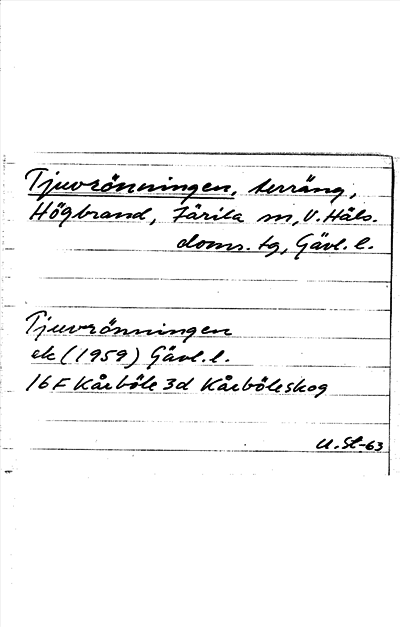 Tjuvrönningen, terräng,
Högbrand, Färila sn, V. Häls.
doms. tg, Gävl. l.
Tjuvrönningen
ek (1959) Gävl. l.
16F Kårböle 3d Kårböleskog
U. St-63